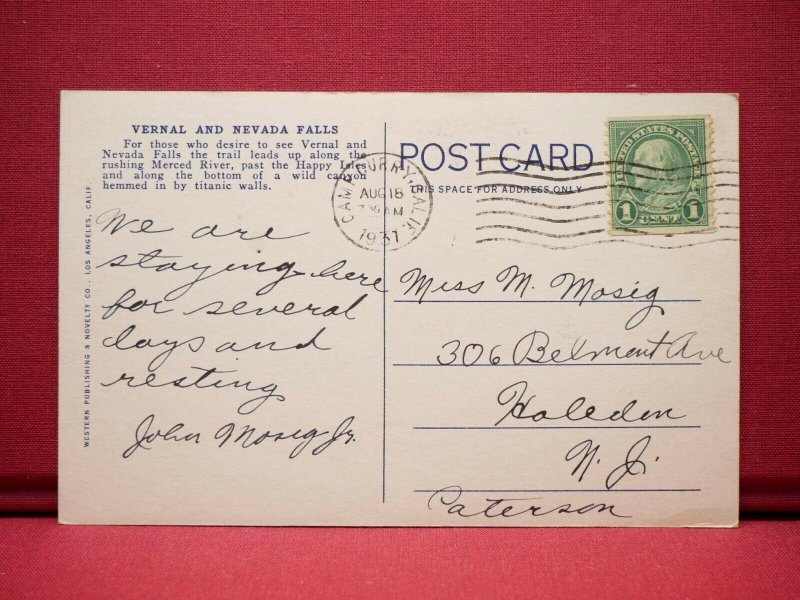 VERNAL AND NEVADA FALLS
For those who desire to see Vernal and
Nevada Falls the trail leads up along the
rushing Merced River, past the Happy Isles
and along the bottom of a wild canyon
hemmed in by titanic walls.
WESTERN PUBLISHING & NOVELTY CO., LOS ANGELES, CALIF.
We are
staying here
for several
days and
resting
John Mosig Jr.
POST CARD
THIS SPACE FOR ADDRESS ONLY
CAMP CURRY, CALIF.
AUG 18
AM
1931
UNITED STATES POSTAGE
1 CENT 1
Miss M. Mosig
306 Belmont Ave
Haledon
N. J.
Paterson